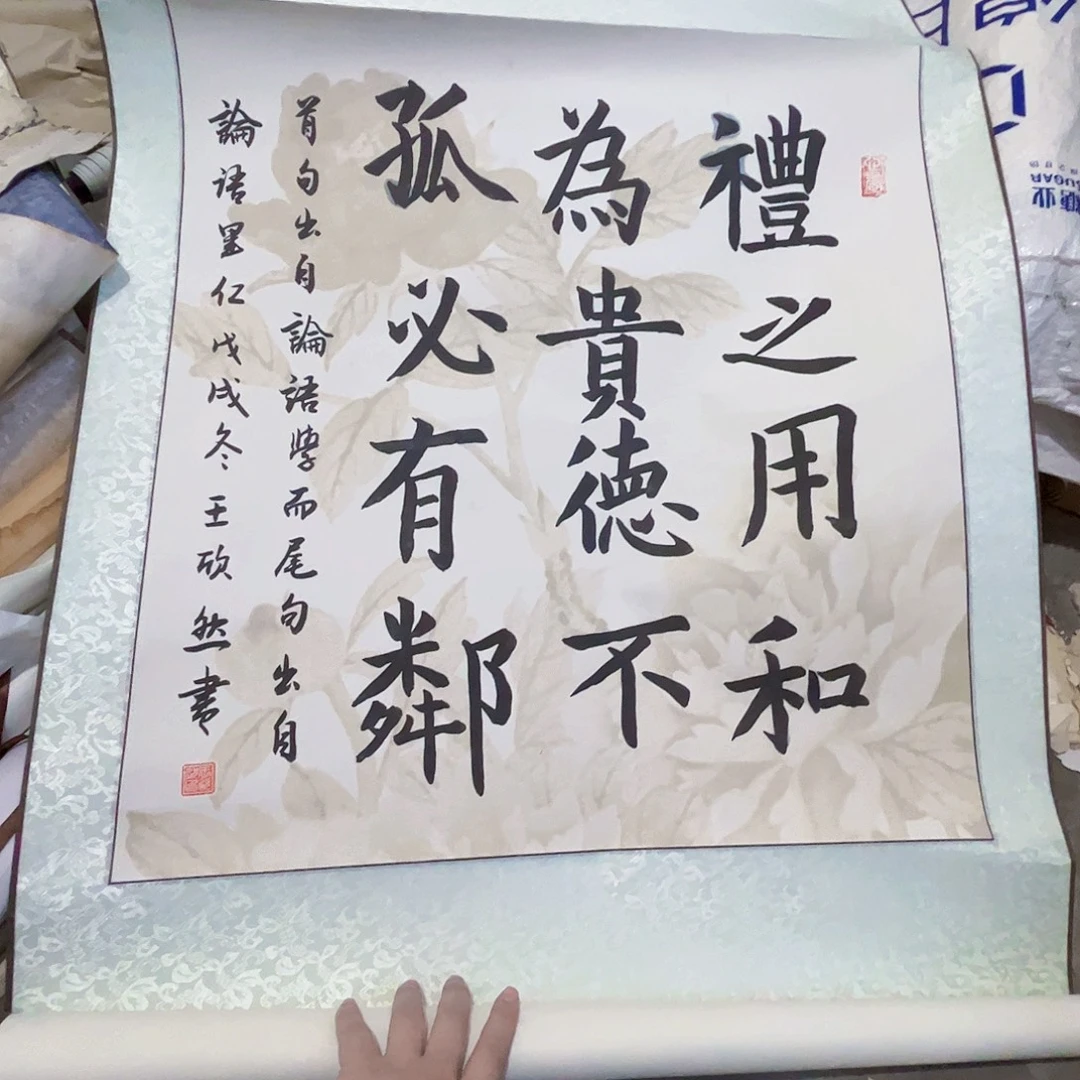 禮之用和
為貴德不
孤必有鄰
首句出自論語學而尾句出自
論语里仁戊戌冬王硕然書
SUGAR
糖业